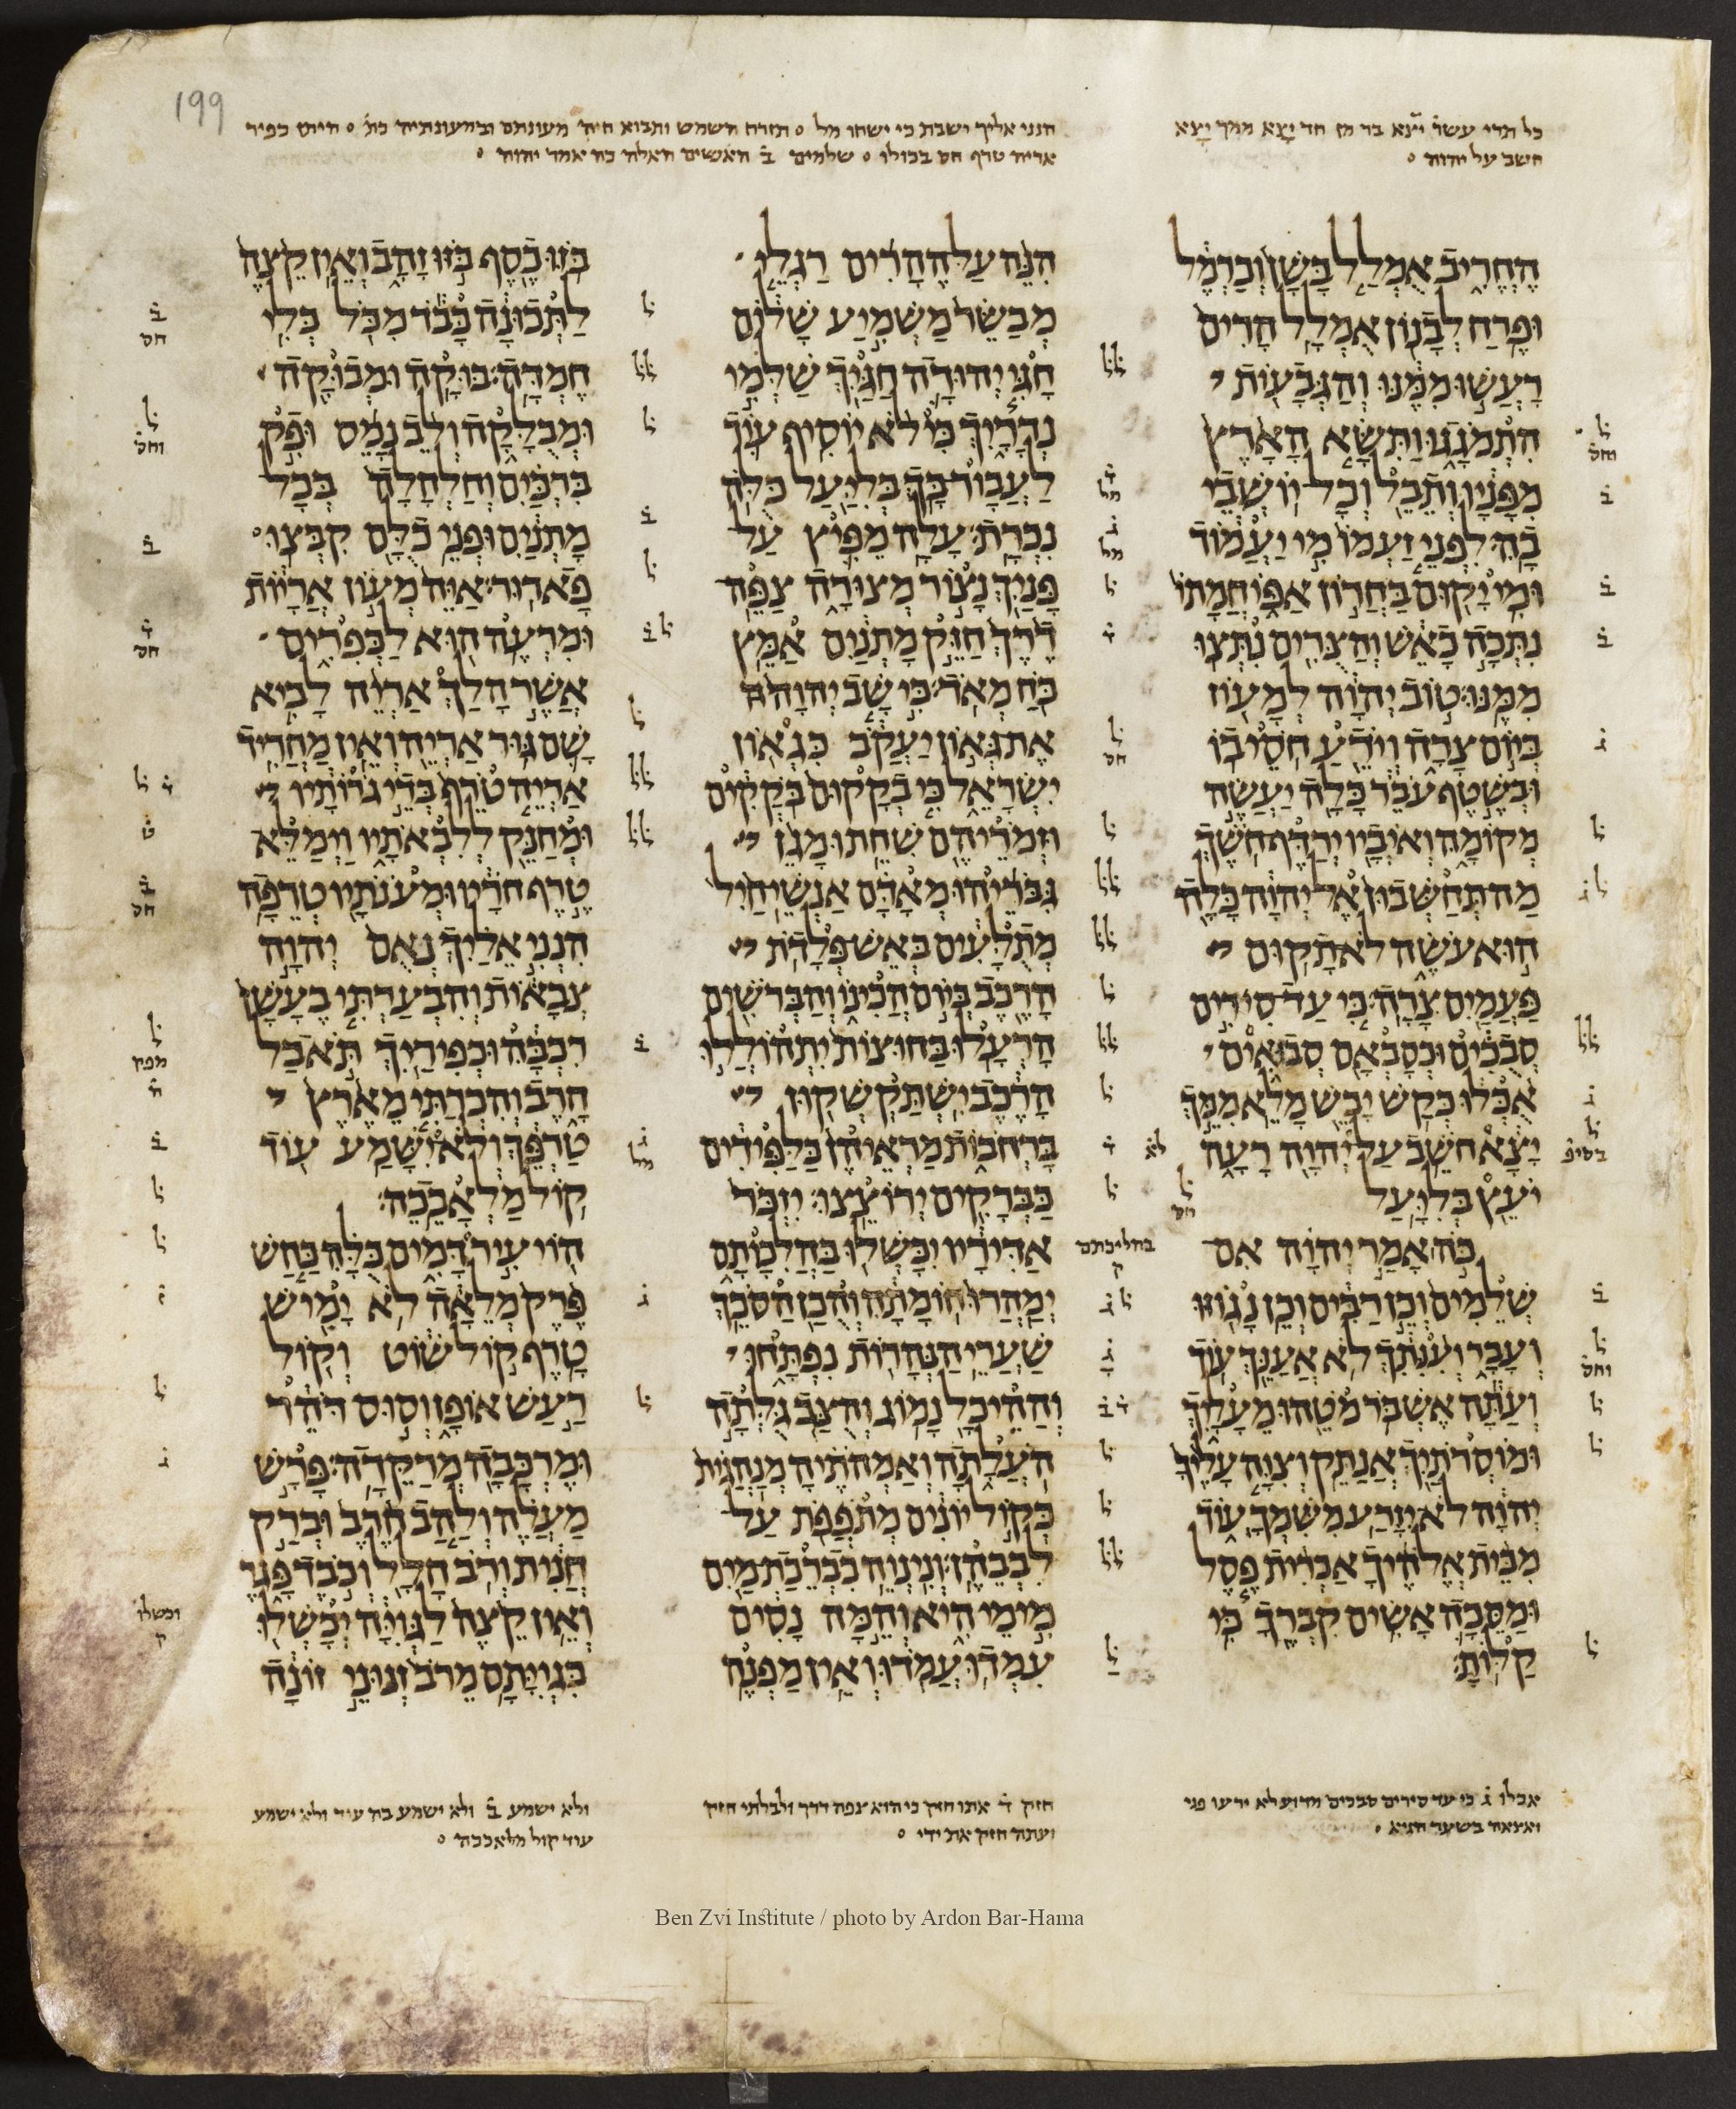 199
כל תרי עשר יצא בר מן חד יצא ממך יצא
חשב על יהוה ○
הנני אליך ישבת כי ישחו מל ○ תזרח השמש ותבוא חיה מעונתם ובמעונתיה כת ○ היום כפיר
אריה טרף חס בכולו ○ שלמים ב האנשים האלה כה אמר יהוה ○
הֶחֱרִיב אֻמְלַל בָּשָׁן וְכַרְמֶל
וּפֶרַח לְבָנוֹן אֻמְלָל הָרִים
רָעֲשׁוּ מִמֶּנּוּ וְהַגְּבָעוֹת
הִתְמֹגָגוּ וַתִּשָּׂא הָאָרֶץ
מִפָּנָיו וְתֵבֵל וְכָל יוֹשְׁבֵי
בָהּ לִפְנֵי זַעְמוֹ מִי יַעֲמוֹד
וּמִי יָקוּם בַּחֲרוֹן אַפּוֹ חֲמָתוֹ
נִתְּכָה כָאֵשׁ וְהַצֻּרִים נִתְּצוּ
מִמֶּנּוּ טוֹב יְהוָה לְמָעוֹז
בְּיוֹם צָרָה וְיֹדֵעַ חֹסֵי בוֹ
וּבְשֶׁטֶף עֹבֵר כָּלָה יַעֲשֶׂה
מְקוֹמָהּ וְאוֹיְבָיו יְרַדֶּף חֹשֶׁךְ
מַה תְּחַשְּׁבוּן אֶל יְהוָה כָּלָה
הוּא עֹשֶׂה לֹא תָקוּם
פַּעֲמַיִם צָרָה כִּי עַד סִירִים
סְבֻכִים וּכְסָבְאָם סְבוּאִים
אֻכְּלוּ כְּקַשׁ יָבֵשׁ מָלֵא מִמֵּךְ
יָצָא חֹשֵׁב עַל יְהוָה רָעָה
יֹעֵץ בְּלִיָּעַל
כֹּה אָמַר יְהוָה אִם
שְׁלֵמִים וְכֵן רַבִּים וְכֵן נָגוֹזּוּ
וְעָבָר וְעִנִּתִךְ לֹא אֲעַנֵּךְ עוֹד
וְעַתָּה אֶשְׁבֹּר מֹטֵהוּ מֵעָלָיִךְ
וּמוֹסְרֹתַיִךְ אֲנַתֵּק וְצִוָּה עָלֶיךָ
יְהוָה לֹא יִזָּרַע מִשִּׁמְךָ עוֹד
מִבֵּית אֱלֹהֶיךָ אַכְרִית פֶּסֶל
וּמַסֵּכָה אָשִׂים קִבְרֶךָ כִּי
קַלּוֹתָ
הִנֵּה עַל הֶהָרִים רַגְלֵי
מְבַשֵּׂר מַשְׁמִיעַ שָׁלוֹם
חָגִּי יְהוּדָה חַגַּיִךְ שַׁלְּמִי
נְדָרָיִךְ כִּי לֹא יוֹסִיף עוֹד
לַעֲבוֹר בָּךְ בְּלִיַּעַל כֻּלֹּה
נִכְרָת עָלָה מֵפִיץ עַל
פָּנַיִךְ נָצוֹר מְצוּרָה צַפֵּה
דֶרֶךְ חַזֵּק מָתְנַיִם אַמֵּץ
כֹּחַ מְאֹד כִּי שָׁב יְהוָה
אֶת גְּאוֹן יַעֲקֹב כִּגְאוֹן
יִשְׂרָאֵל כִּי בְקָקוּם בֹּקְקִים
וּזְמֹרֵיהֶם שִׁחֵתוּ מָגֵן
גִּבֹּרֵיהוּ מְאָדָּם אַנְשֵׁי חַיִל
מְתֻלָּעִים בְּאֵשׁ פְּלָדֹת
הָרֶכֶב בְּיוֹם הֲכִינוֹ וְהַבְּרֹשִׁים
הָרְעָלוּ בַּחוּצוֹת יִתְהוֹלְלוּ
הָרֶכֶב יִשְׁתַּקְשְׁקוּן
בָּרְחֹבוֹת מַרְאֵיהֶן כַּלַּפִּידִים
כַּבְּרָקִים יְרוֹצֵצוּ יִזְכֹּר
אַדִּירָיו יִכָּשְׁלוּ בַּהֲלִכוֹתָם
יְמַהֲרוּ חוֹמָתָהּ וְהֻכַן הַסֹּכֵךְ
שַׁעֲרֵי הַנְּהָרוֹת נִפְתָּחוּ
וְהַהֵיכָל נָמוֹג וְהֻצַּב גֻּלְּתָה
הֹעֲלָתָה וְאַמְהֹתֶיהָ מְנַהֲגוֹת
כְּקוֹל יוֹנִים מְתֹפְפֹת עַל
לִבְבֵהֶן וְנִינְוֵה כִבְרֵכַת מַיִם
מִימֵי הִיא וְהֵמָּה נָסִים
עִמְדוּ עֲמֹדוּ וְאֵין מַפְנֶה
בֹּזּוּ כֶסֶף בֹּזּוּ זָהָב וְאֵין קֵצֶה
לַתְּכוּנָה כָּבֹד מִכֹּל כְּלִי
חֶמְדָּה בּוּקָה וּמְבוּקָה
וּמְבֻלָּקָה וְלֵב נָמֵס וּפִק
בִּרְכַּיִם וְחַלְחָלָה בְּכָל
מָתְנַיִם וּפְנֵי כֻלָּם קִבְּצוּ
פָארוּר אַיֵּה מְעוֹן אֲרָיוֹת
וּמִרְעֶה הוּא לַכְּפִרִים
אֲשֶׁר הָלַךְ אַרְיֵה לָבִיא
שָׁם גּוּר אַרְיֵה וְאֵין מַחֲרִיד
אַרְיֵה טֹרֵף בְּדֵי גֹרוֹתָיו
וּמְחַנֵּק לְלִבְאֹתָיו וַיְמַלֵּא
טֶרֶף חֹרָיו וּמְעֹנֹתָיו טְרֵפָה
הִנְנִי אֵלַיִךְ נְאֻם יְהוָה
צְבָאוֹת וְהִבְעַרְתִּי בֶעָשָׁן
רִכְבָּהּ וּכְפִירַיִךְ תֹּאכַל
חָרֶב וְהִכְרַתִּי מֵאֶרֶץ
טַרְפֵּךְ וְלֹא יִשָּׁמַע עוֹד
קוֹל מַלְאָכֵכֵה
הוֹי עִיר דָּמִים כֻּלָּהּ כַּחַשׁ
פֶּרֶק מְלֵאָה לֹא יָמִישׁ
טָרֶף קוֹל שׁוֹט וְקוֹל
רַעַשׁ אוֹפָן וְסוּס דֹּהֵר
וּמֶרְכָּבָה מְרַקֵּדָה פָּרָשׁ
מַעֲלֶה וְלַהַב חֶרֶב וּבְרַק
חֲנִית וְרֹב חָלָל וְכֹבֶד פָּגֶר
וְאֵין קֵצֶה לַגְּוִיָּה יְכָשְׁלוּ
בִּגְוִיָּתָם מֵרֹב זְנוּנֵי זוֹנָה
בהליכתם
ק
וכשלו
ק
אכלו ג כי עד סירים סבכים מדוע לא יראו פני
ואצאה בשער הגיא ○
חזק ד אתו חזק כי הוא צפה דרך ולבלתי חזק
ועתה חזק את ידי ○
ולא ישמע ב ולא ישמע בה עוד ולא ישמע
עוד קול מלאככה ○
Ben Zvi Institute / photo by Ardon Bar-Hama